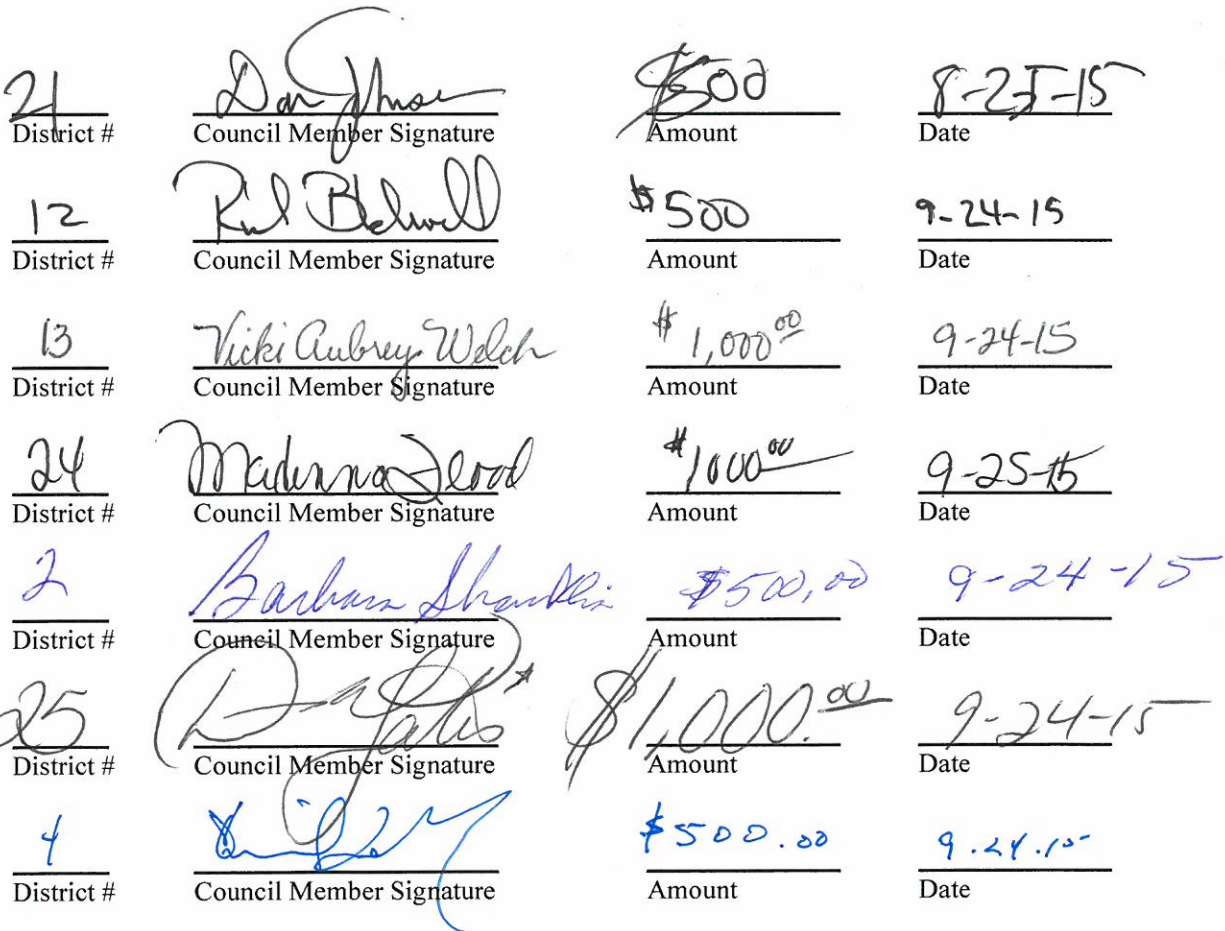 21 Dan Johnson $500 8-25-15
District # Council Member Signature Amount Date
12 $500 9-24-15
District # Council Member Signature Amount Date
13 Vicki Aubrey Welch $1,000 00 9-24-15
District # Council Member Signature Amount Date
24 Madonna Flood $1000 00 9-25-15
District # Council Member Signature Amount Date
2 Barbara Shanklin $500.00 9-24-15
District # Council Member Signature Amount Date
25 Yates $1,000.00 9-24-15
District # Council Member Signature Amount Date
4 $500.00 9.24.15
District # Council Member Signature Amount Date